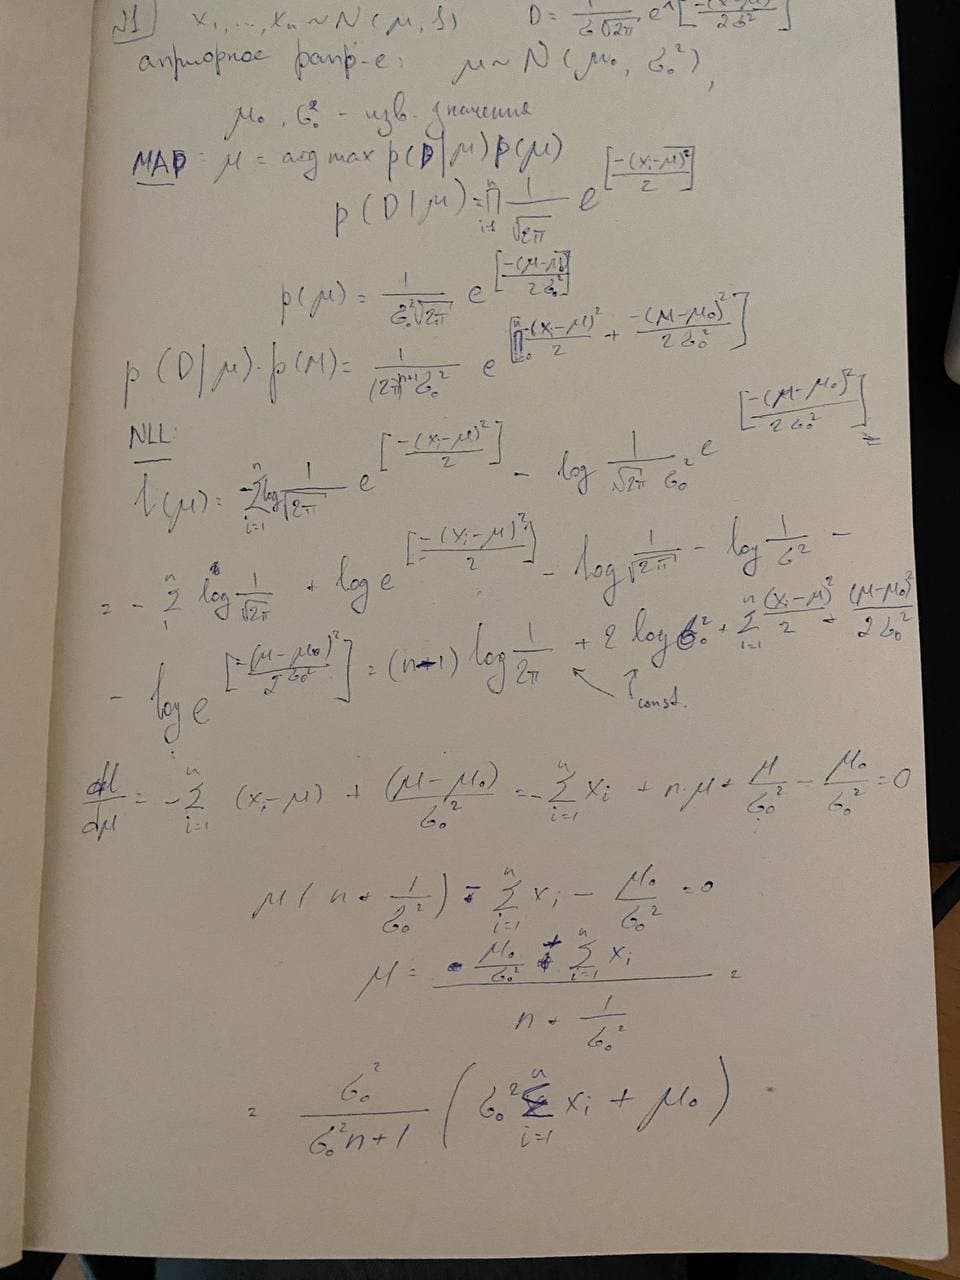 №1 x₁, ..., xₙ ~ N(μ, 1) D = 1/(σ√2π) · e^[-(x-μ)²/2σ²]
априорное распр-е: μ ~ N(μ₀, σ₀²),
μ₀, σ₀² - изв. значения
MAP: μ = arg max p(D|μ)p(μ)
p(D|μ) = ∏ᵢ₌₁ⁿ 1/√2π e^[-(xᵢ-μ)²/2]
p(μ) = 1/(σ₀²√2π) e^[-(μ-μ₀)²/2σ₀²]
p(D|μ)·p(μ) = 1/((2π)ⁿ⁺¹σ₀²) e^[-(xᵢ-μ)²/2 + -(μ-μ₀)²/2σ₀²]
NLL:
l(μ) = -∑ᵢ₌₁ⁿ log 1/√2π e^[-(xᵢ-μ)²/2] - log 1/(√2π σ₀²) e^[-(μ-μ₀)²/2σ₀²] =
= -∑₁ⁿ log 1/√2π + log e^[-(xᵢ-μ)²/2] - log 1/√2π - log 1/σ² -
- log e^[-(μ-μ₀)²/2σ₀²] = (n+1) log 1/2π + 2 log σ₀² + ∑ᵢ₌₁ⁿ (xᵢ-μ)²/2 + (μ-μ₀)²/2σ₀²
const.
dl/dμ = -∑ᵢ₌₁ⁿ (xᵢ-μ) + (μ-μ₀)/σ₀² = -∑ᵢ₌₁ⁿ xᵢ + n·μ + μ/σ₀² - μ₀/σ₀² = 0
μ(n + 1/σ₀²) - ∑ᵢ₌₁ⁿ xᵢ - μ₀/σ₀² = 0
μ = (μ₀/σ₀² + ∑ᵢ₌₁ⁿ xᵢ)/(n + 1/σ₀²) =
= σ₀²/(σ₀²n+1) (σ₀² ∑ᵢ₌₁ⁿ xᵢ + μ₀)